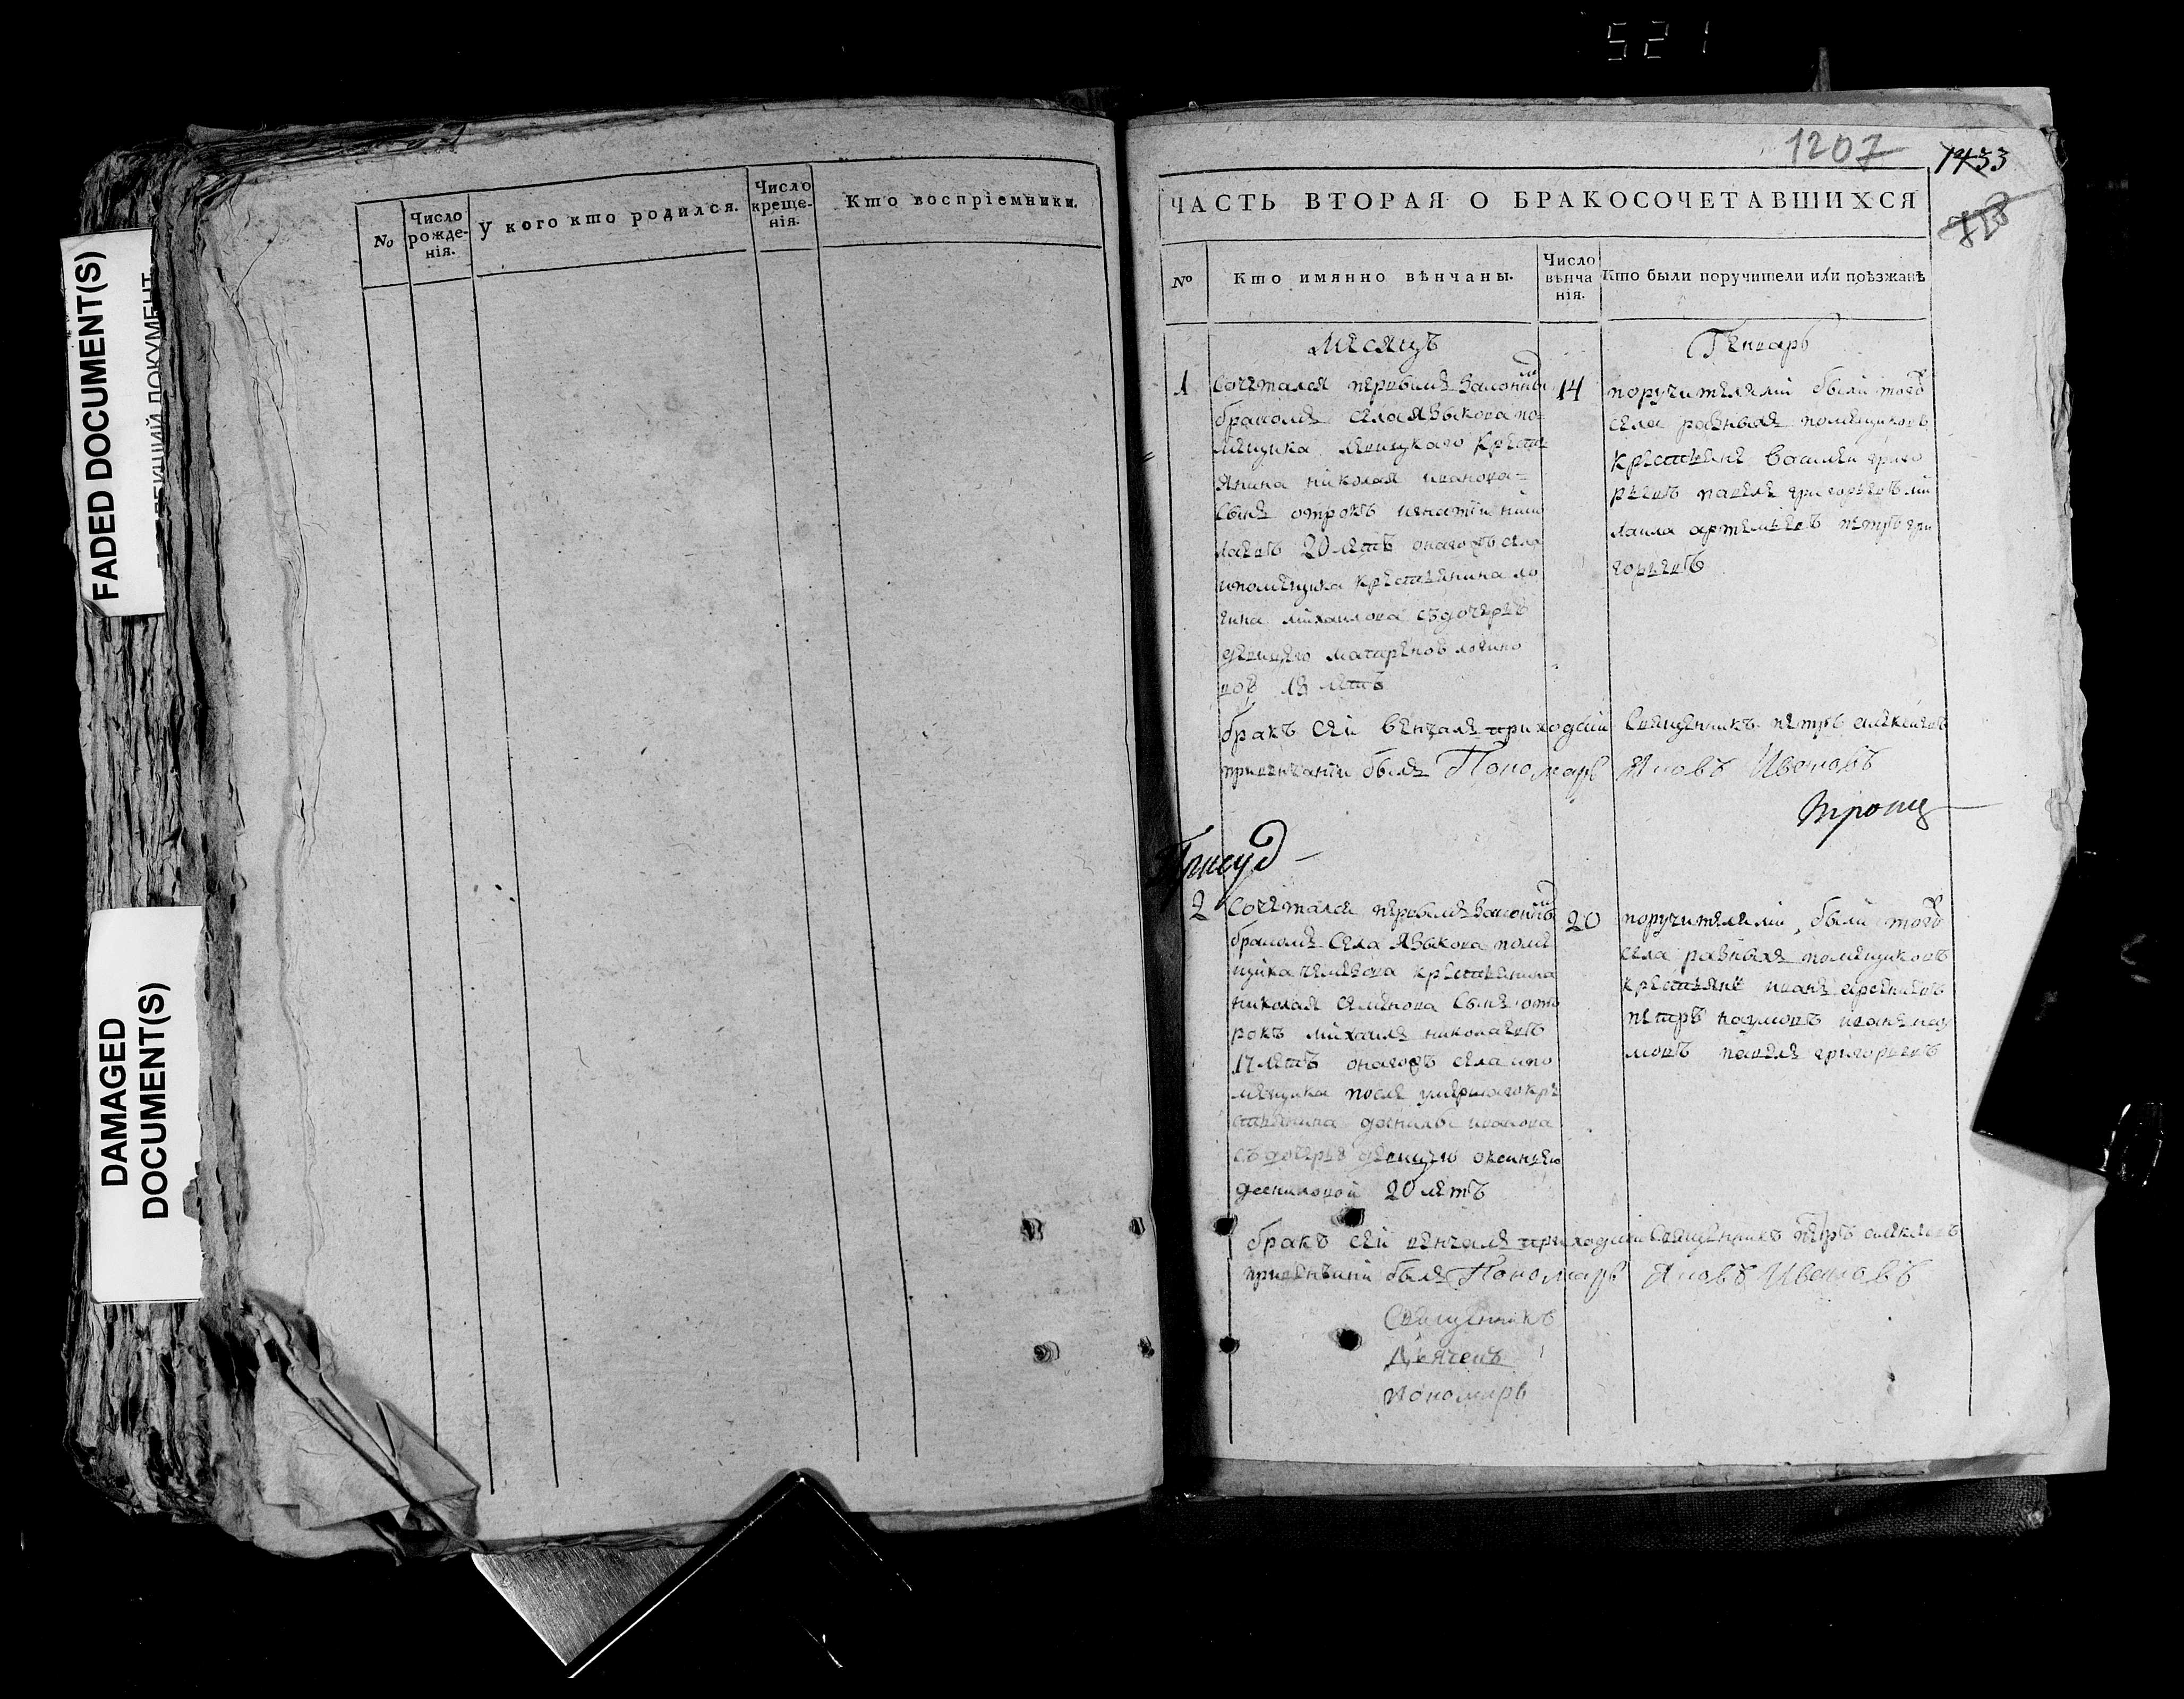 521
FADED DOCUMENT(S)
DAMAGED
DOCUMENT(S)
№
Число рожде-нія.
У кого кто родился.
Число креще-нія.
Кто воспріемники.
1207
1433
ЧАСТЬ ВТОРАЯ О БРАКОСОЧЕТАВШИХСЯ
№
Кто имянно вѣнчаны.
Число вѣнча нія.
Кто были поручители или поѣзжанѣ
Месяцъ
Генварь
1
Сочетался первымъ законны
бракомъ села Языкова по
мещика крест
янина николая иванова
сынъ отрокъ игнатіи нико
лаевъ 20 летъ оногожъ села
ипомещика крестьянина ло
гина михаилова съдочерью
девицею матреною логино
вой 18 летъ
14
поручителями были тогожъ
села разныхъ помещиковъ
крестьяне василеи григо
рьевъ павелъ григорьевъ ми
хаила артемьевъ петръ гри
горьевъ
бракъ сеи венчалъ приходскій Священникъ петръ алексеевъ
привенчаніи былъ Пономарь Яковъ Ивановъ
2
Сочетался первымъ законны
бракомъ села Языкова поме
щика крестьянина
николая семенова сынъ отро
рокъ михаилъ николаевъ
17 летъ оногожъ села ипо
мещика после умершаго кре
стьянина данилы иванова
съдочерью девицею оксиньею
даниловой 20 летъ
20
поручителями были тогожъ
села разныхъ помещиковъ
крестьяне иванъ арсеньевъ
петръ наумовъ иванъ нау
мовъ павелъ григорьевъ
бракъ сеи венчалъ приходскіи Священникъ петръ алексеевъ
привенчаніи былъ Пономарь Яковъ Ивановъ
Священникъ
Дьячекъ
Пономарь